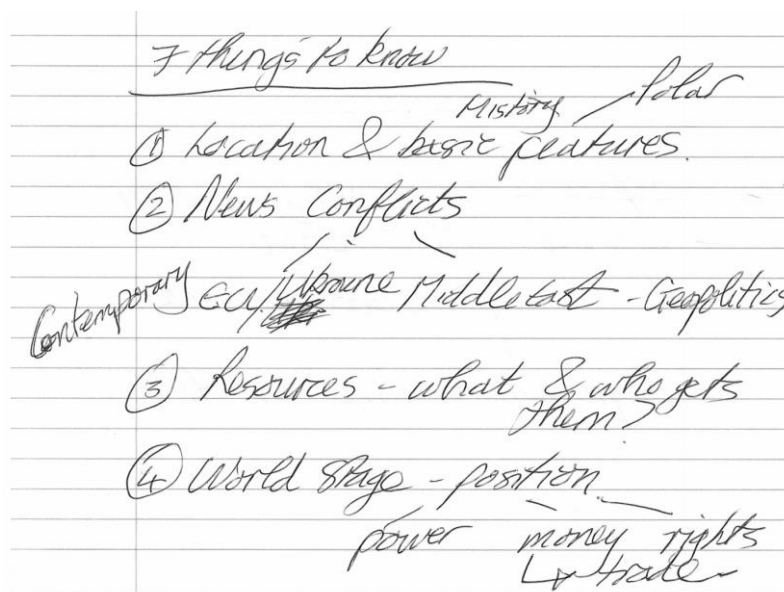 7 things to know
History Polar
① Location & basic features.
② News Conflicts
Contemporary EU/Ukraine Middle East - Geopolitics
③ Resources - what & who gets
them?
④ World stage - position
power money rights
↳ trade